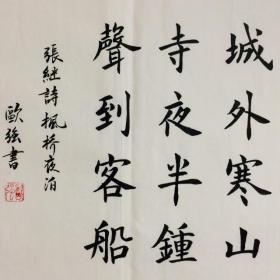 城外寒山
寺夜半鍾
聲到客船
張継詩楓橋夜泊
歐強書